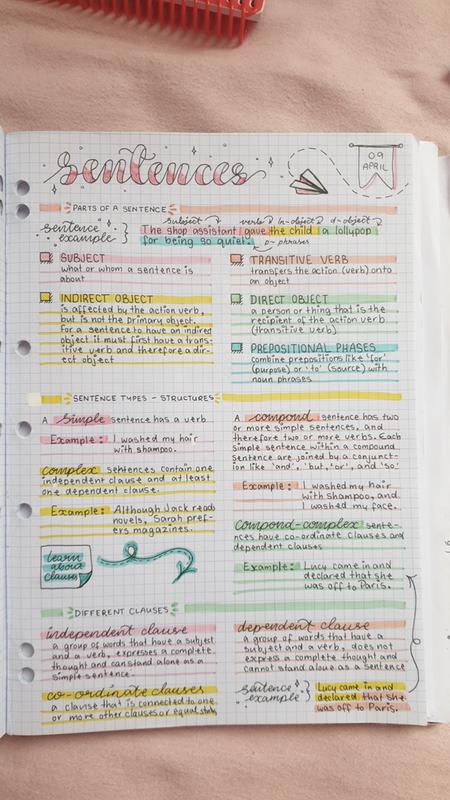 sentences
09
APRIL
PARTS OF A SENTENCE
subject verb in-object d-object
sentence example
The shop assistant gave the child a lollypop
for being so quiet.
p-phrases
SUBJECT
what or whom a sentence is
about
INDIRECT OBJECT
is affected by the action verb,
but is not the primary object.
For a sentence to have an indirect
object it must first have a trans-
itive verb and therefore a dir-
ect object
TRANSITIVE VERB
transfers the action (verb) onto
an object
DIRECT OBJECT
a person or thing that is the
recipient of the action verb
(transitive verb)
PREPOSITIONAL PHASES
combine prepositions like 'for'
(purpose) or 'to' (source) with
noun phrases
SENTENCE TYPES - STRUCTURES
A simple sentence has a verb
Example: I washed my hair
with shampoo.
complex sentences contain one
independent clause and at least
one dependent clause.
Example: Although Jack reads
novels, Sarah pref-
ers magazines.
learn
about
clauses
A compond sentence has two
or more simple sentences, and
therefore two or more verbs. Each
simple sentence within a compound
sentence are joined by a conjunct-
ion like 'and', 'but, 'or', and 'so'
Example: I washed my hair
with shampoo, and
I washed my face.
compond-complex sente-
nces have co-ordinate clauses and
dependent clauses
Example: Lucy came in and
declared that she
was off to Paris.
DIFFERENT CLAUSES
independent clause
a group of words that have a subject
and a verb, expresses a complete
thought and can stand alone as a
simple sentence
co-ordinate clauses
a clause that is connected to one
or more other clauses of equal status
dependent clause
a group of words that have a
subject and a verb, does not
express a complete thought and
cannot stand alone as a sentence
sentence example
Lucy came in and
declared that she
was off to Paris.